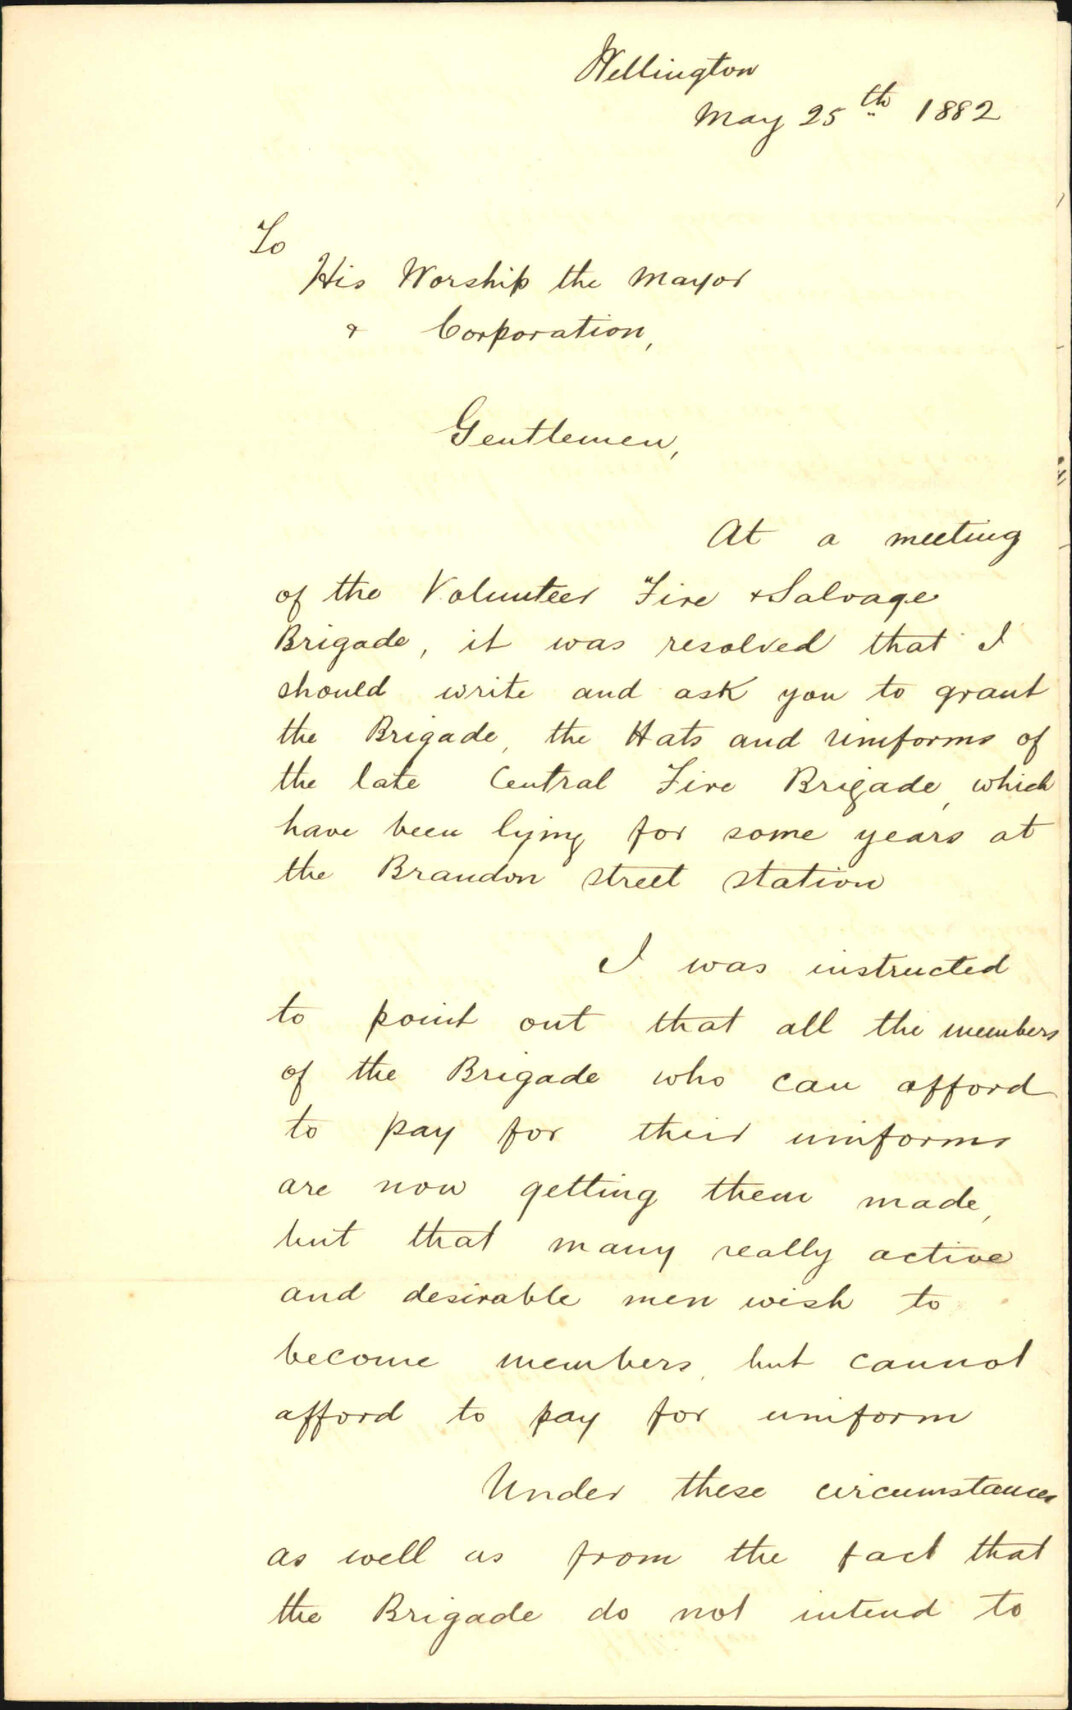 Wellington
May 25th 1882
To
His Worship the Mayor
& Corporation,
Gentlemen,
At a meeting
of the Volunteer Fire & Salvage
Brigade, it was resolved that I
should write and ask you to grant
the Brigade, the Hats and Uniforms of
the late Central Fire Brigade, which
have been lying for some years at
the Brandon street station
I was instructed
to point out that all the members
of the Brigade who can afford
to pay for their uniforms
are now getting them made,
but that many really active
and desirable men wish to
become members, but cannot
afford to pay for uniform
Under these circumstances
as well as from the fact that
the Brigade do not intend to